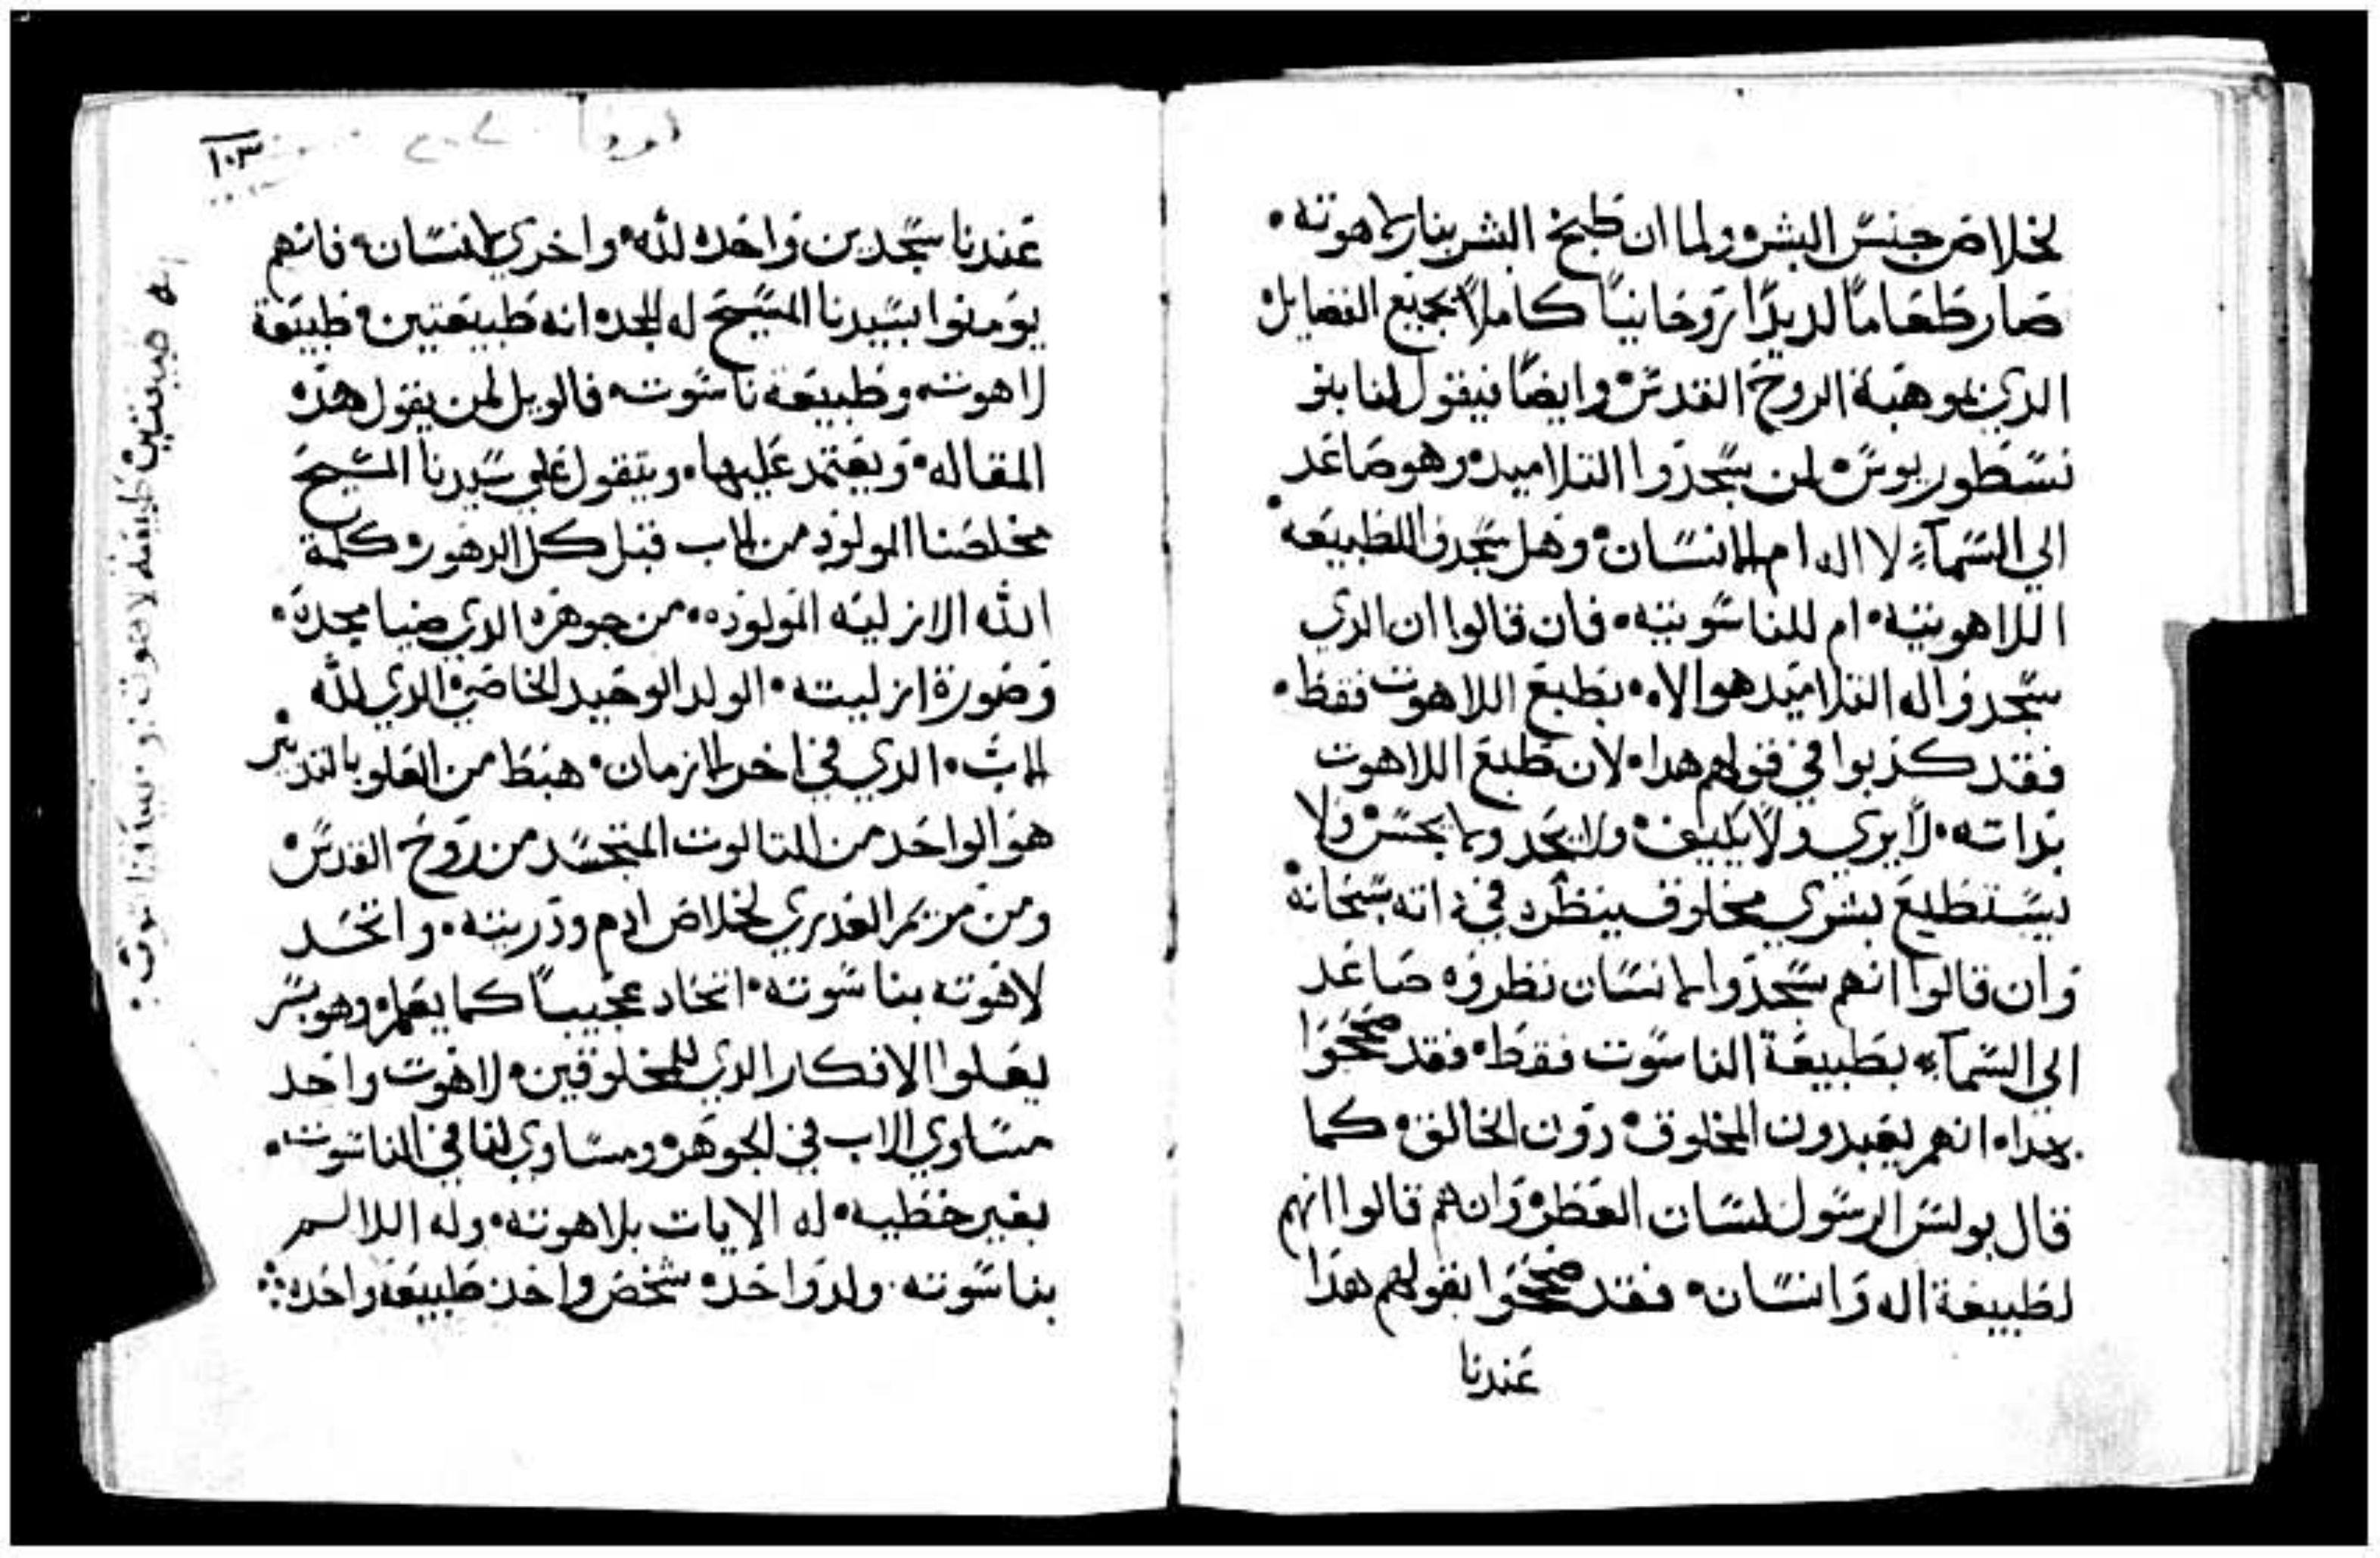 لخلاص جنس البشر ولما ان طبخ البشر بنار لاهوته
صار طعاماً لديداً روحانياً كاملاً بجميع الفضايل
الدي بموهبة الروح القدس وايضاً فيقول لنا بنو
نسطوريوس لمن سجدوا التلاميد وهو صاعد
الي السمآء لا اله ام لانسان وهل سجدوا للطبيعه
اللاهوتيه ام للناسوتيه فان قالوا ان الدي
سجدوا له التلاميد هو الاه بطبع اللاهوت فقط
فقد كذبوا في قولهم هدا لان طبع اللاهوت
بداته لا يري ولا يكيف ولا يحد ولا يحس ولا
يستطيع بشري مخلوق ينظر في ذاته سبحانه
وان قالوا انهم سجدوا لانسان نظروه صاعد
الي السمآء بطبيعة الناسوت فقط فقد صححوا
بهدا انهم يعبدون المخلوق دون الخالق كما
قال بولس الرسول لسان العطر وان هم قالوا انهم
لطبيعة اله وانسان فقد صححوا بقولهم هدا
عندنا
١٠٣
عندنا سجدتين واحده لله واخري لانسان فانهم
يومنوا بسيدنا المسيح له المجد انه طبيعتين طبيعة
لاهوته وطبيعة ناسوته فالويل لمن يقول هده
المقاله ويعتمد عليها ويتقول علي سيدنا المسيح
مخلصنا المولود من الاب قبل كل الدهور كلمة
الله الازليه المولود من جوهره الدي ضيا مجده
وصورة ازليته الولد الوحيد الخاص الدي لله
الاب الدي في اخر الازمان هبط من العلو بالتدبير
هو الواحد من التالوت المتجسد من روح القدس
ومن مريم العدري لخلاص ادم ودريته واتحد
لاهوته بناسوته اتحاد عجيباً كما يعلم وهو بسر
يعلوا الافكار الدي للمخلوقين لاهوت واحد
مساوي الاب في الجوهر ومساوي لنا في الناسوت
بغير خطيه له الايات بلاهوته وله اللالم
بناسوته ولد واحد شخص واحد طبيعه واحده
طبيعتين طبيعة لاهوت و ناسوت